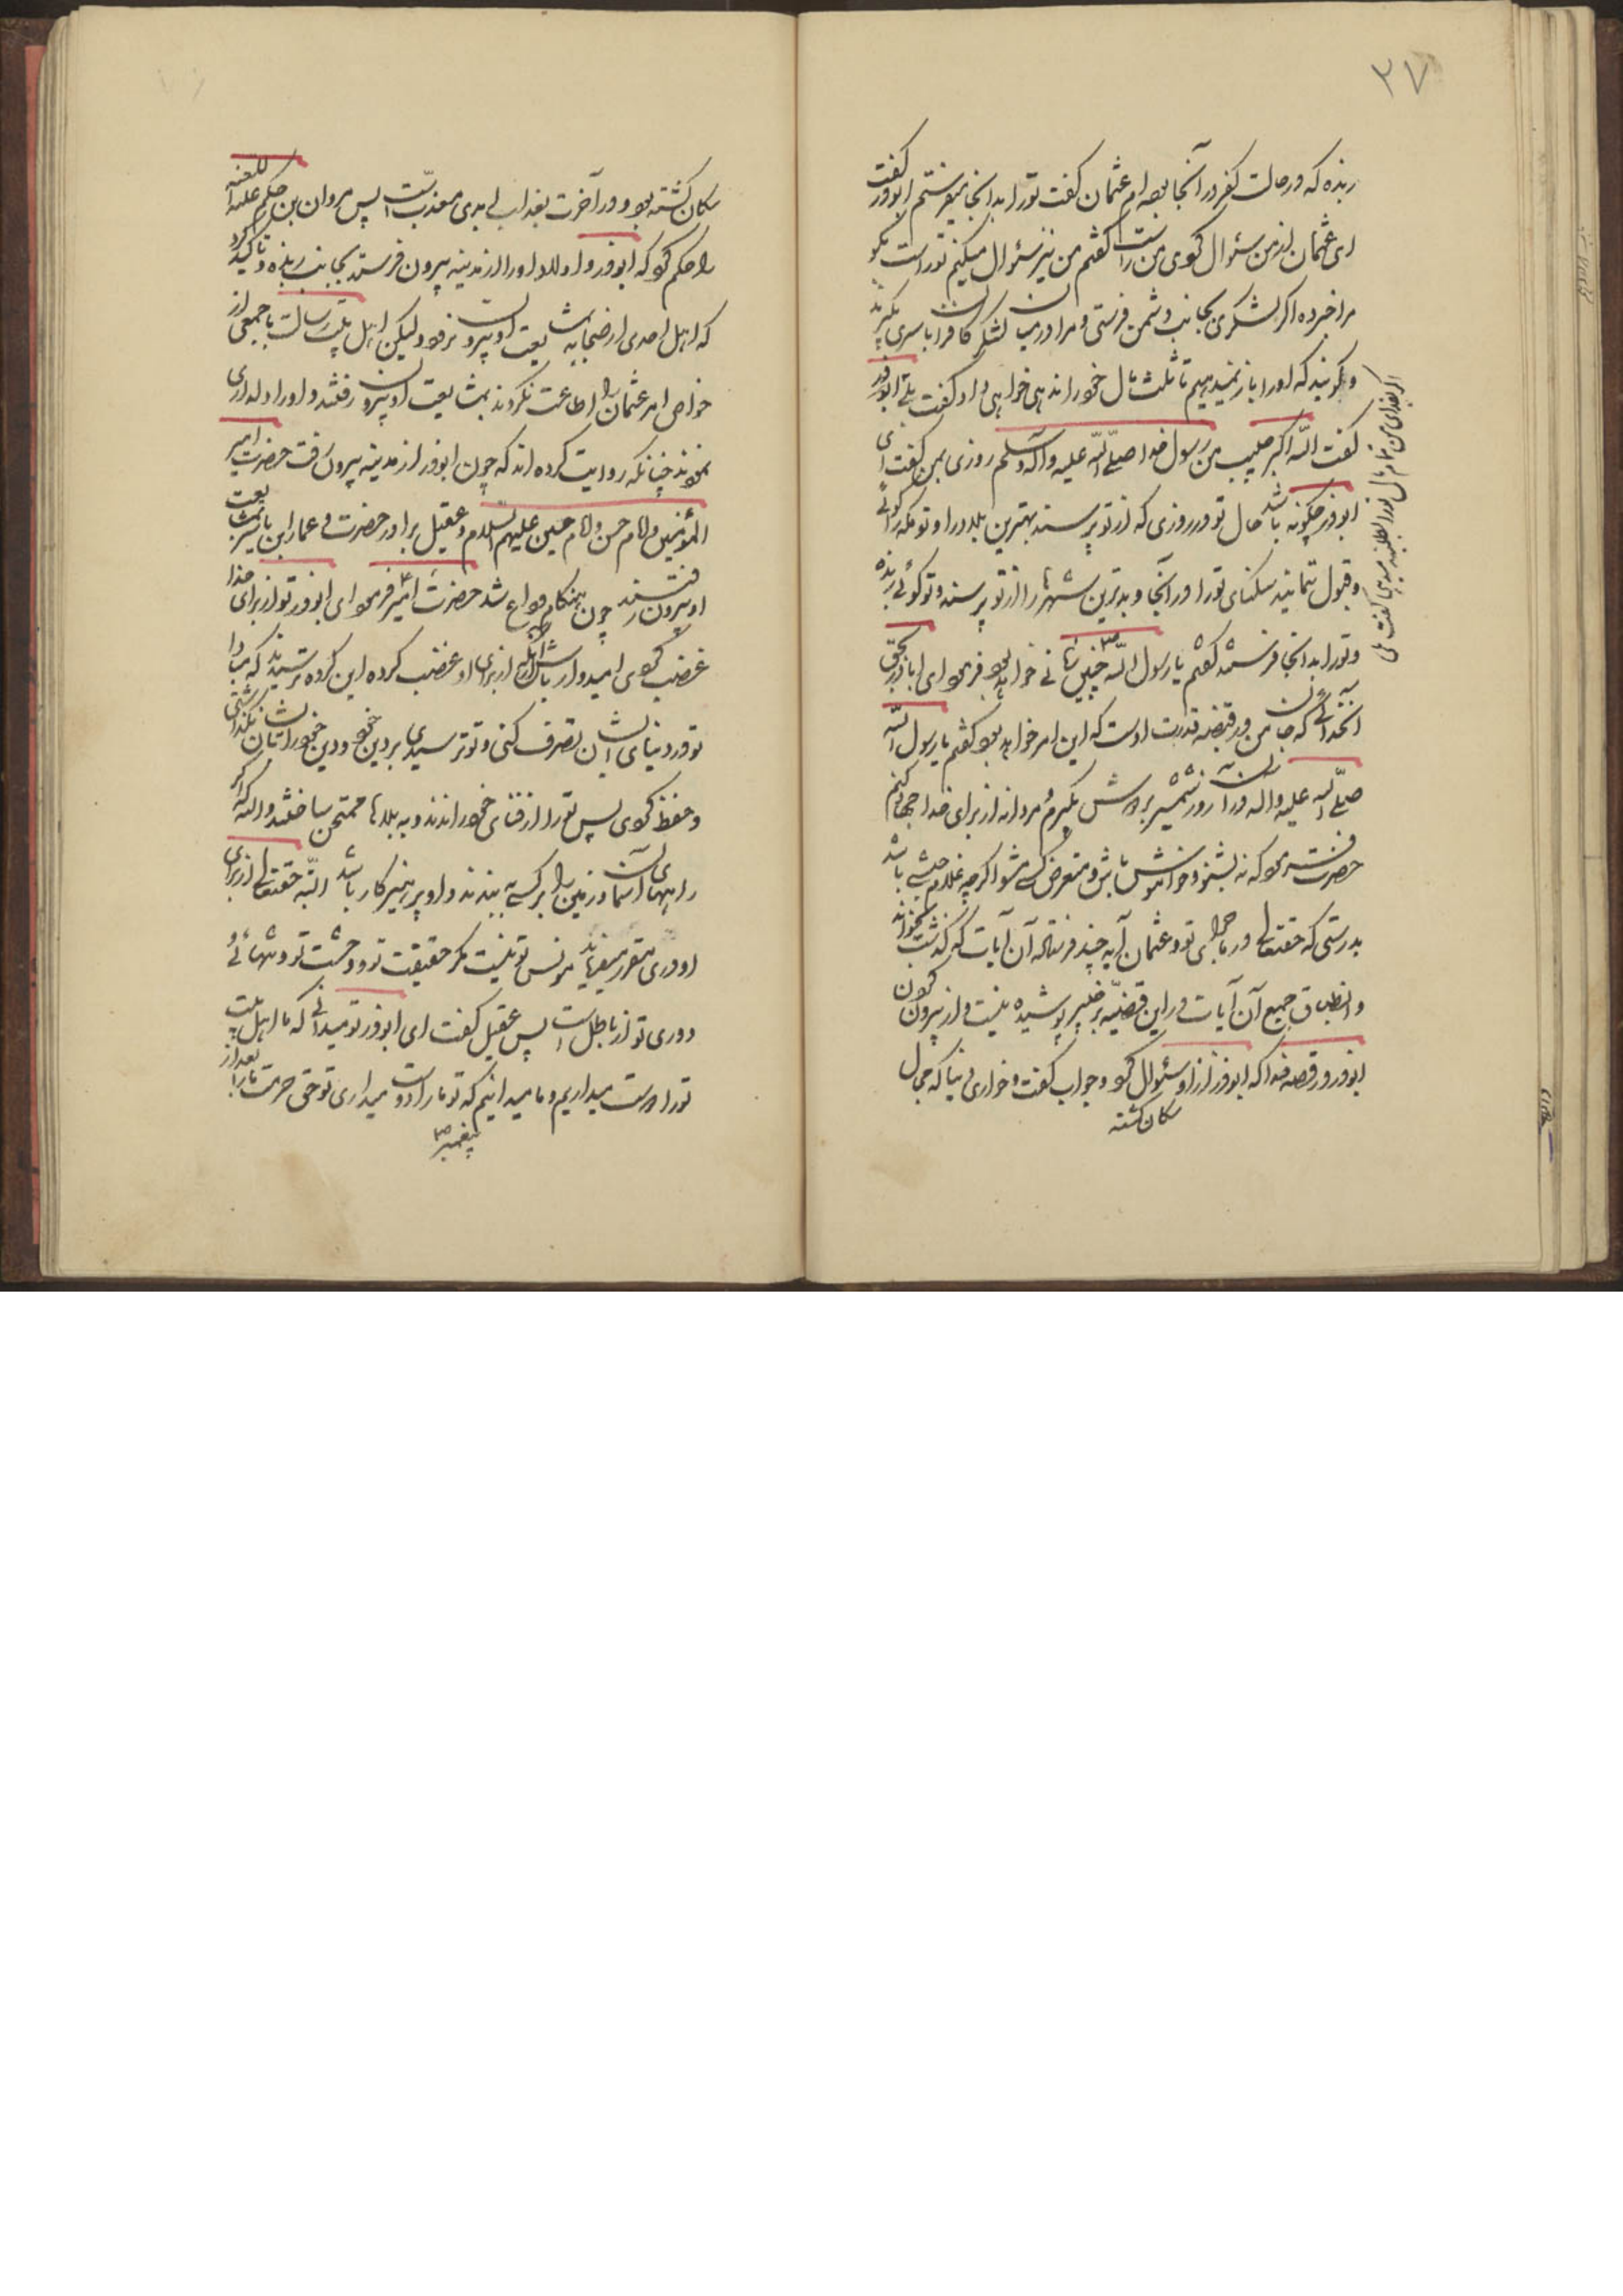 ٣٧
ربذه که در حالت کفر در آنجا بوده‌ام عثمان گفت تو را بدانجا میفرستم ابوذر گفت
ای عثمان از من سئوال کردی من راست گفتم من نیز سئوال میکنم تو راست بگو
مرا خبر ده اگر لشکری بجانب دشمن فرستی و مرا در میان لشکر کافران باسری بگیرند
و گویند که او را باز نمیدهیم تا ثلث مال خود را ندهی خواهی داد گفت بلی ابوذر
گفت الله اکبر حبیب من رسول خدا صلی الله علیه وآله وسلم روزی بمن گفت ای
ابوذر چگونه باشد حال تو در روزی که از تو پرسند بهترین بلاد را و تو مکه را گوئی
و قبول ننمایند سکنای تو را در آنجا و بدترین شهرها را از تو پرسند و تو گوئی ربذه
و تو را بدانجا فرستند گفتم یا رسول الله چنین زمانی خواهد بود فرمود ای اباذر بحق
آنخدائی که جان من در قبضه قدرت اوست که این امر خواهد بود گفتم یا رسول الله
صلی الله علیه واله در آنروز شمشیر بر دوش بگیرم و مردانه از برای خدا جهاد کنم
حضرت فرمود که نه بشنو و خاموش باش و متعرض کسی مشو اگرچه غلام حبشی باشد
بدرستی که حقتعالی در ماجرای تو و عثمان آیه چند فرستاده آن آیات که گذشت بخواند
و انطباق جمیع آن آیات در این قضیه بر خبیر پوشیده نیست و از بیرون کردن
ابوذر در قصه فدا که ابوذر از او سئوال کرد و جواب گفت و خواری دنیا که حمال
سکان گشته
سکان گشته بود و در آخرت بعذاب ابدی معذبست پس مروان بن حکم علیه اللعنه
را حکم کرد که ابوذر و اولاد او را از مدینه بیرون فرستد بجانب ربذه و تاکید کرد
که اهل احدی از صحابه بمشایعت او بیرون نرود ولیکن اهل بیت رسالت با جمعی از
خواص امر عثمان را اطاعت نکردند بمشایعت او بیرون رفتند و او را دلداری
نمودند چنانکه روایت کرده‌اند که چون ابوذر از مدینه بیرون رفت حضرت امیر
المؤمنین و امام حسن و امام حسین علیهم السلام و عقیل برادر حضرت و عمار ابن یاسر بمشایعت
او بیرون رفتند چون هنگام وداع شد حضرت امیر فرمود ای ابوذر تو از برای خدا
غضب کردی امیدوار باش از آنکه از برای او غضب کرده این گروه ترسیدند که مبادا
تو در دنیای ایشان تصرف کنی و تو ترسیدی بر دین خود و دین خود را بایشان نگذاشتی
و حفظ کردی پس تو را از فنای خود راندند و به بلاها ممتحن ساختند والله که اگر
راههای آسمان و زمین را بر کسی ببندند و او پرهیزکار باشد البته حقتعالی از برای
او دری مقرر میفرماید مونس تو نیست مگر حقیقت تو و وحشت تو و تنهائی و
دوری تو از باطل است پس عقیل گفت ای ابوذر تو میدانی که ما اهل بیت
تو را دوست میداریم و ما میدانیم که تو ما را دوست میداری تو حق حرمت ما را بعد از
پیغمبر